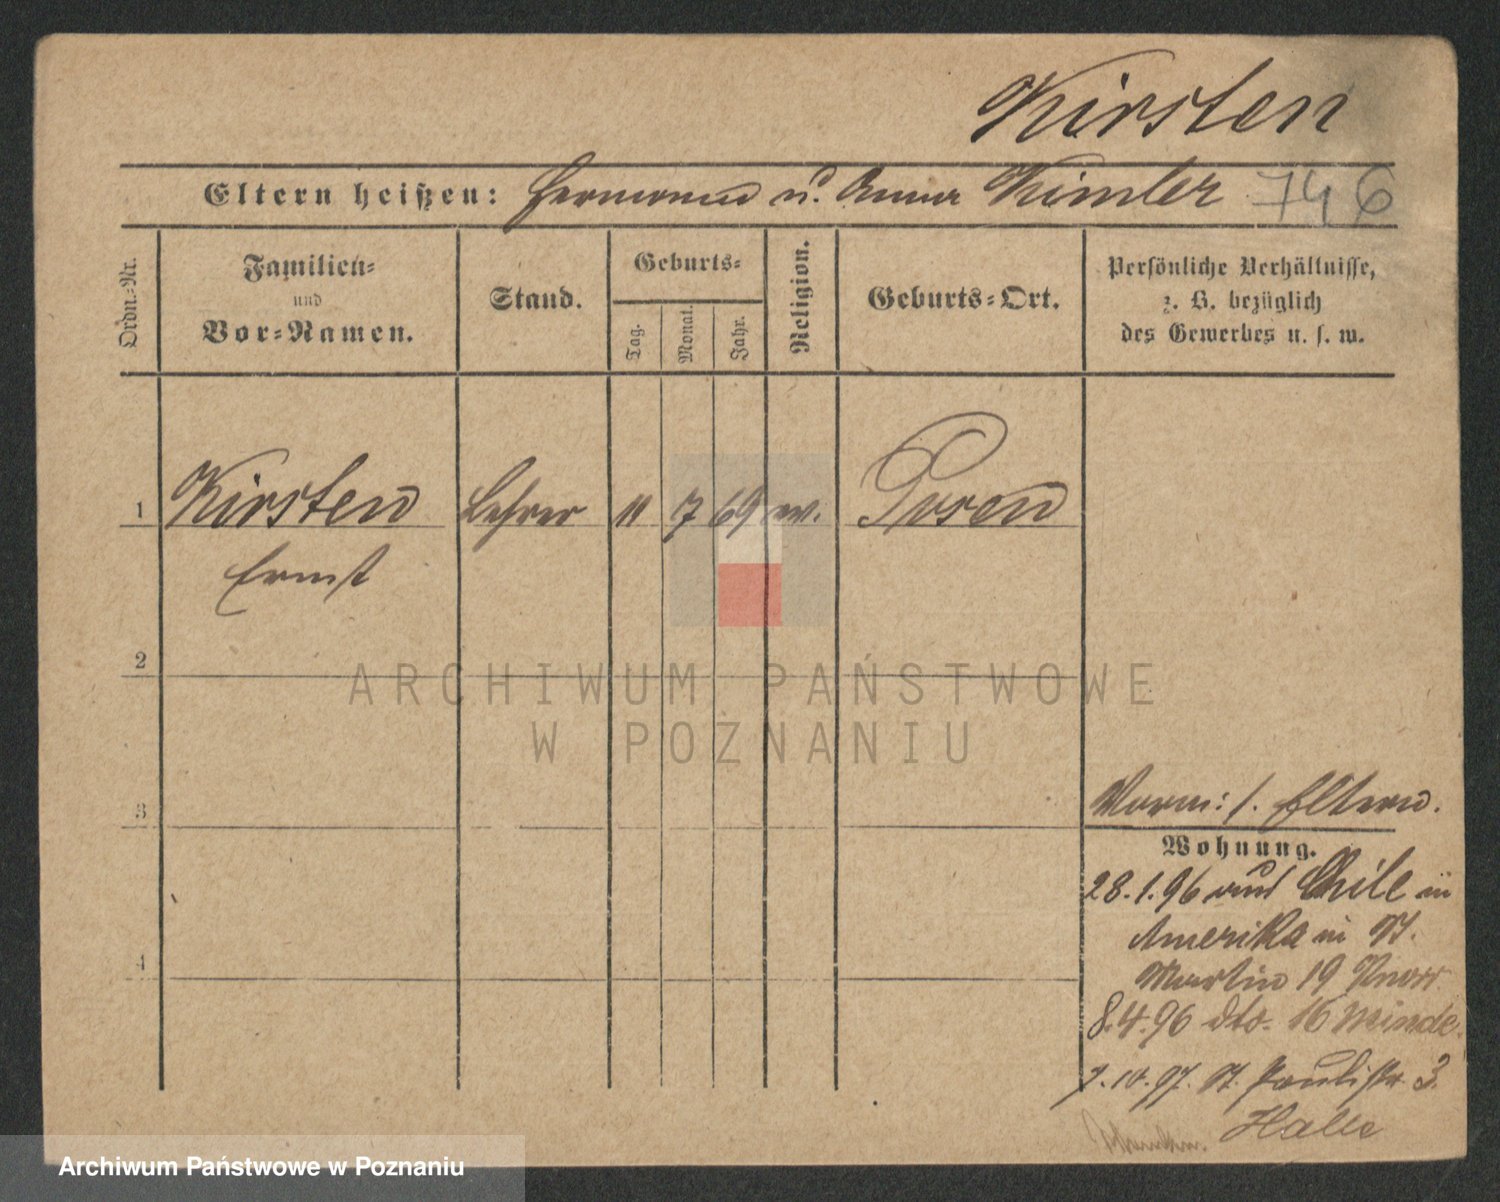 Kirsten
Eltern heißen: Hermann u. Anna Kimler 746
Ordn.-Nr.
Familien-
und
Vor-Namen.
Stand.
Geburts-
Tag.
Monat.
Jahr.
Religion.
Geburts-Ort.
Persönliche Verhältnisse,
z. B. bezüglich
des Gewerbes u. s. w.
1 Kirsten Lehrer 11 7 69 ev. Posen
Ernst
2
ARCHIWUM PAŃSTWOWE
W POZNANIU
3
Vorm: s. Eltern.
Wohnung.
28.1.96 aus Chile in
Amerika in St.
4
Martin 19 Knorr
8.4.96 dto. 16 Minde
7.10.97. St. Paulistr. 3.
Halle
Archiwum Państwowe w Poznaniu